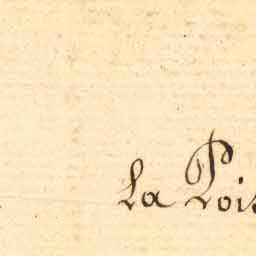 La Pois